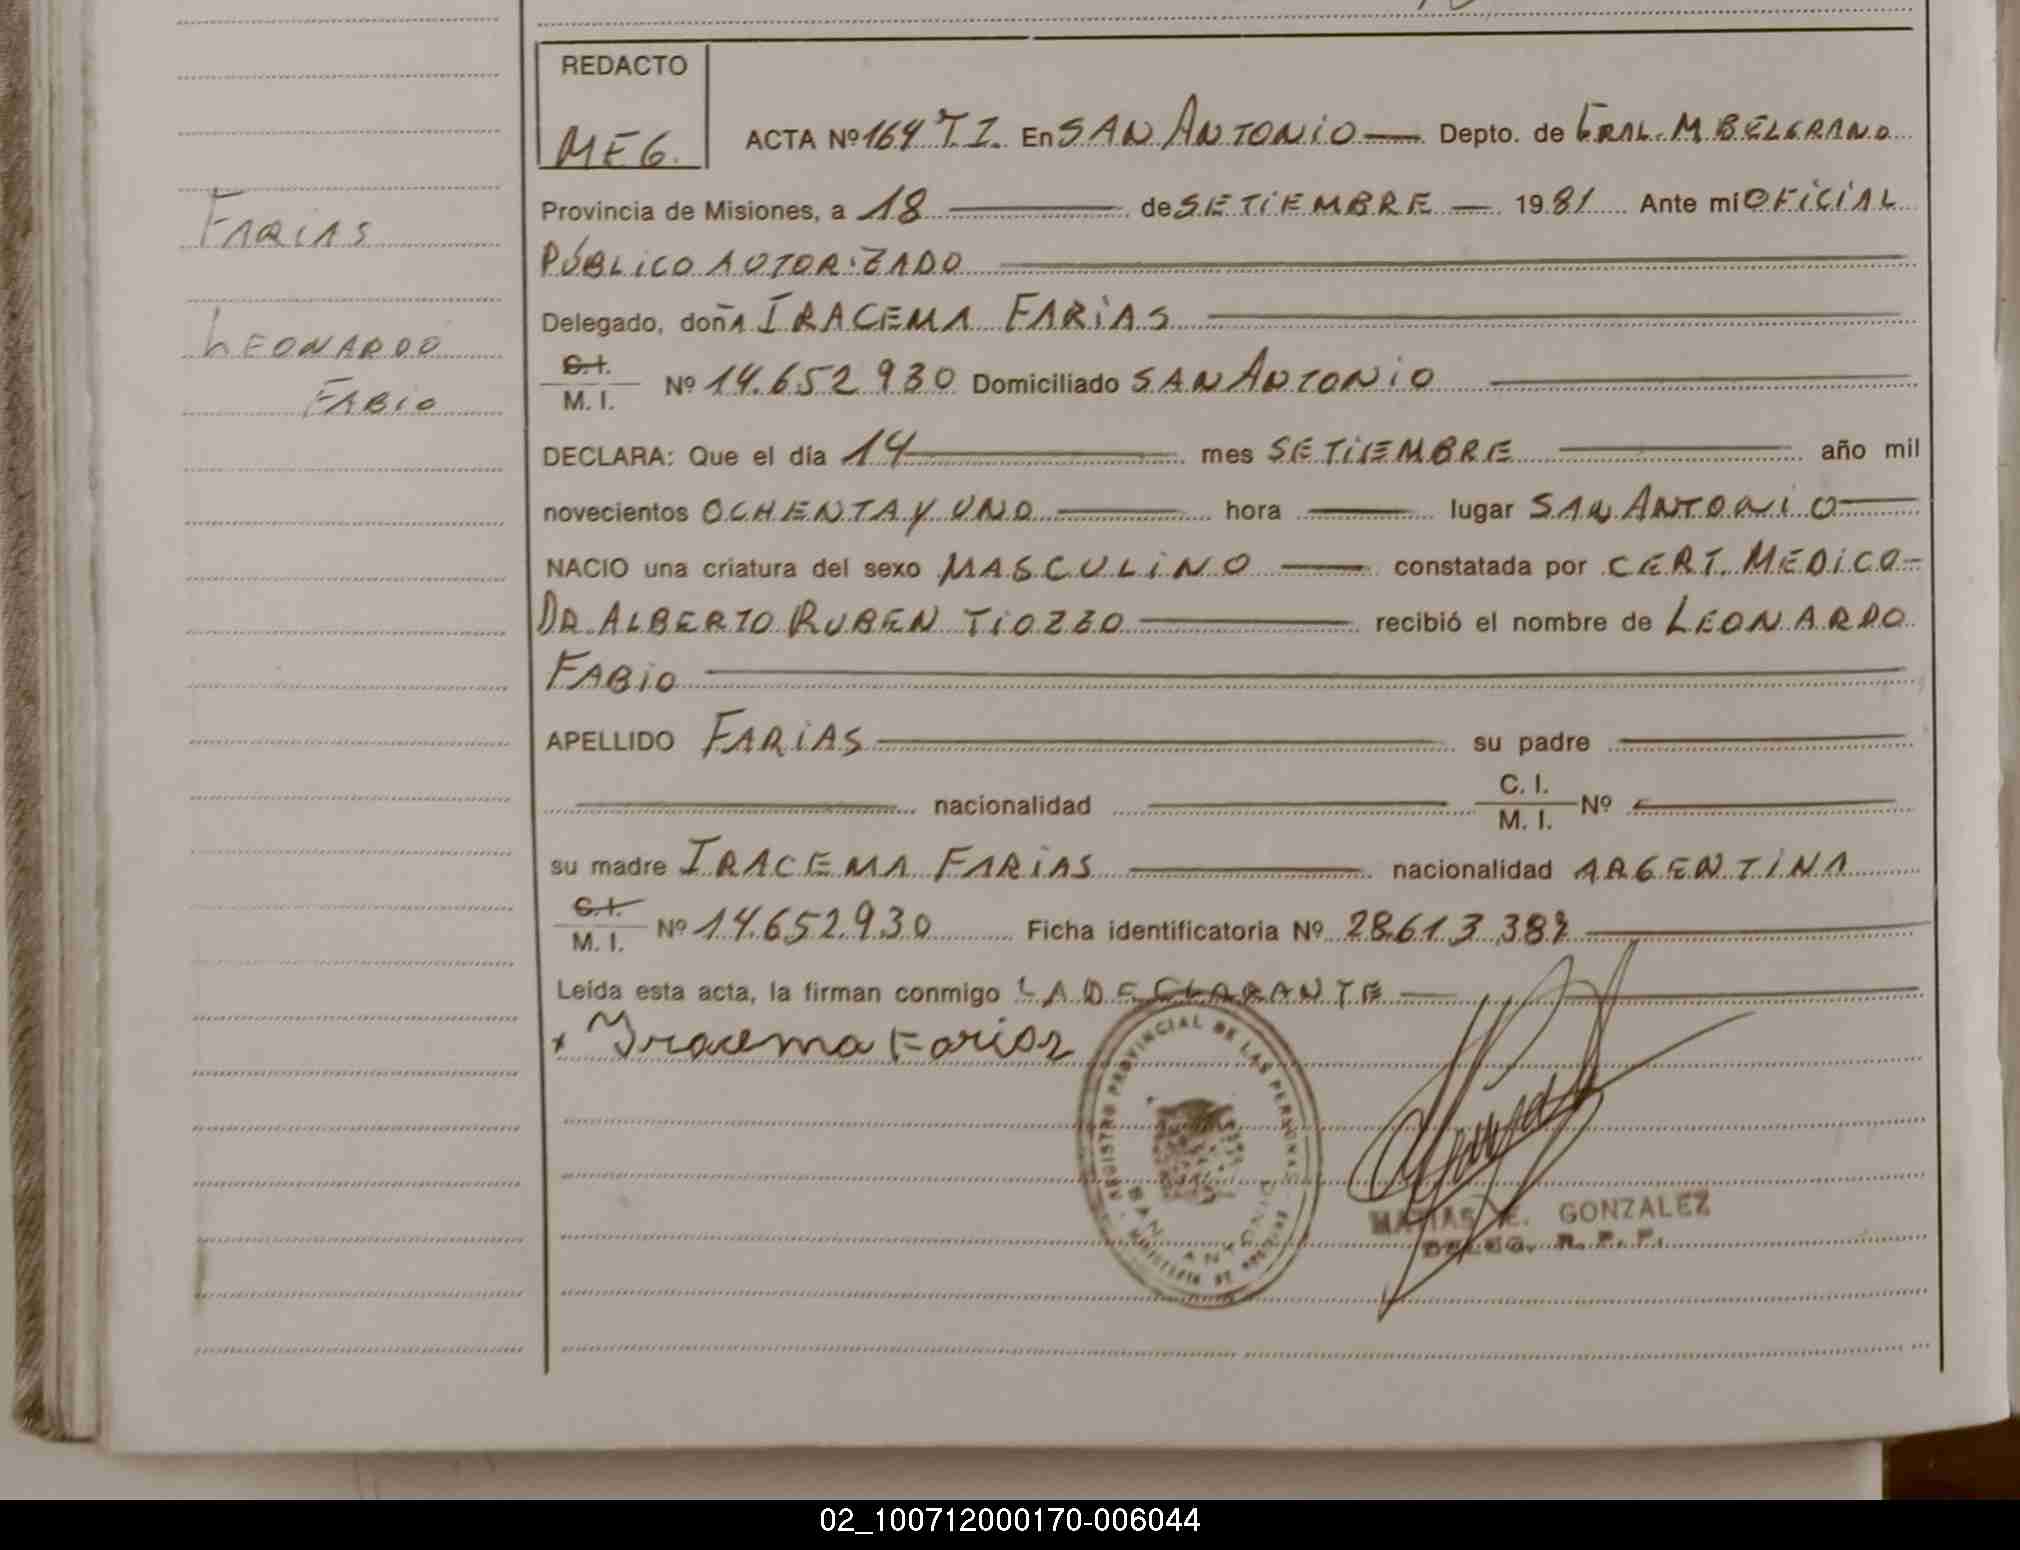 REDACTO
MEG.
ACTA Nº 164 T.I. En SAN ANTONIO Depto. de GRAL. M. BELGRANO
Provincia de Misiones, a 18 de SETIEMBRE 1981 Ante mi OFICIAL
PÚBLICO AUTORIZADO
Delegado, doñA IRACEMA FARIAS
C.I.
M. I. Nº 14.652.930 Domiciliado SAN ANTONIO
DECLARA: Que el día 14 mes SETIEMBRE año mil
novecientos OCHENTA Y UNO hora lugar SAN ANTONIO
NACIO una criatura del sexo MASCULINO constatada por CERT. MEDICO
DR. ALBERTO RUBEN TIOZZO recibió el nombre de LEONARDO
FABIO
APELLIDO FARIAS su padre
nacionalidad C. I.
M. I. Nº
su madre IRACEMA FARIAS nacionalidad ARGENTINA
C.I.
M. I. Nº 14.652.930 Ficha identificatoria Nº 28.613.38
Leída esta acta, la firman conmigo LA DECLARANTE
x Iracema Farias
REGISTRO PROVINCIAL DE LAS PERSONAS
SAN ANTONIO
MATIAS E. GONZALEZ
DELEG. R. P. P.
FARIAS
LEONARDO
FABIO
02_100712000170-006044